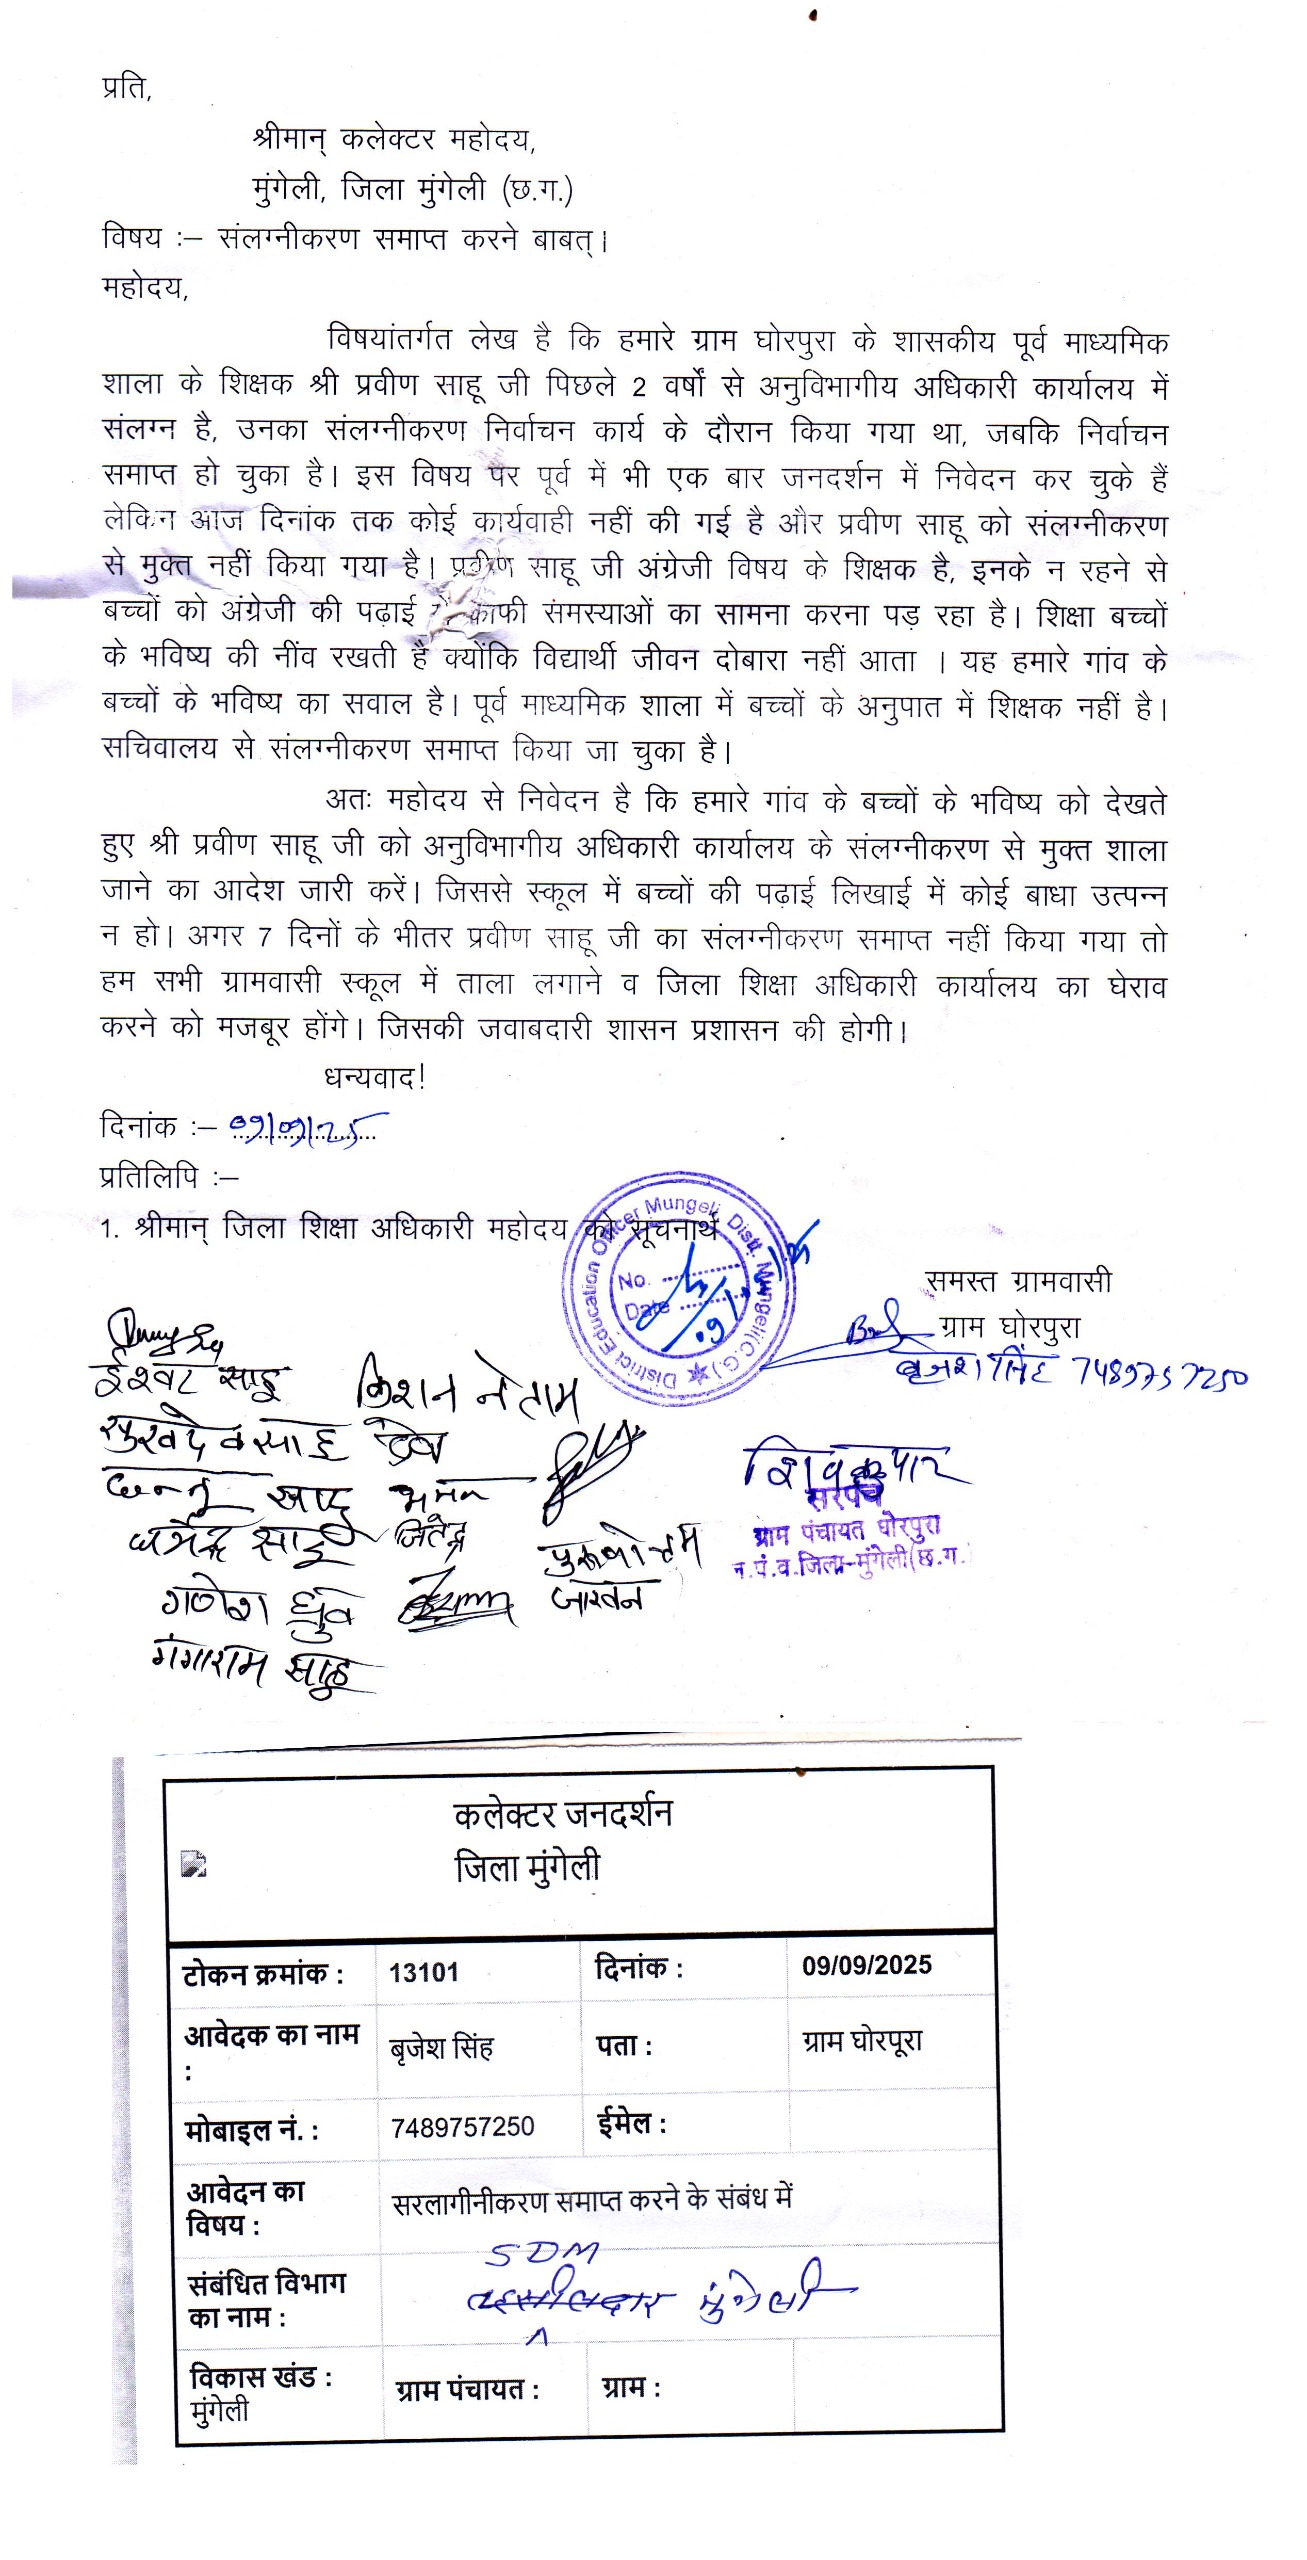 प्रति,
श्रीमान् कलेक्टर महोदय,
मुंगेली, जिला मुंगेली (छ.ग.)
विषय :– संलग्नीकरण समाप्त करने बाबत्।
महोदय,
विषयांतर्गत लेख है कि हमारे ग्राम घोरपुरा के शासकीय पूर्व माध्यमिक
शाला के शिक्षक श्री प्रवीण साहू जी पिछले 2 वर्षों से अनुविभागीय अधिकारी कार्यालय में
संलग्न है, उनका संलग्नीकरण निर्वाचन कार्य के दौरान किया गया था, जबकि निर्वाचन
समाप्त हो चुका है। इस विषय पर पूर्व में भी एक बार जनदर्शन में निवेदन कर चुके हैं
लेकिन आज दिनांक तक कोई कार्यवाही नहीं की गई है और प्रवीण साहू को संलग्नीकरण
से मुक्त नहीं किया गया है। प्रवीण साहू जी अंग्रेजी विषय के शिक्षक है, इनके न रहने से
बच्चों को अंग्रेजी की पढ़ाई में काफी समस्याओं का सामना करना पड़ रहा है। शिक्षा बच्चों
के भविष्य की नींव रखती है क्योंकि विद्यार्थी जीवन दोबारा नहीं आता । यह हमारे गांव के
बच्चों के भविष्य का सवाल है। पूर्व माध्यमिक शाला में बच्चों के अनुपात में शिक्षक नहीं है।
सचिवालय से संलग्नीकरण समाप्त किया जा चुका है।
अतः महोदय से निवेदन है कि हमारे गांव के बच्चों के भविष्य को देखते
हुए श्री प्रवीण साहू जी को अनुविभागीय अधिकारी कार्यालय के संलग्नीकरण से मुक्त शाला
जाने का आदेश जारी करें। जिससे स्कूल में बच्चों की पढ़ाई लिखाई में कोई बाधा उत्पन्न
न हो। अगर 7 दिनों के भीतर प्रवीण साहू जी का संलग्नीकरण समाप्त नहीं किया गया तो
हम सभी ग्रामवासी स्कूल में ताला लगाने व जिला शिक्षा अधिकारी कार्यालय का घेराव
करने को मजबूर होंगे। जिसकी जवाबदारी शासन प्रशासन की होगी।
धन्यवाद!
दिनांक :– 09/09/25
प्रतिलिपि :–
1. श्रीमान् जिला शिक्षा अधिकारी महोदय को सूचनार्थ
District Education Officer Mungeli Distt. Mungeli(C.G.)
No.
Date
समस्त ग्रामवासी
ग्राम घोरपुरा
बृजेश सिंह 7489757250
ईश्वर साहू किशन नेताम
सुखदेव साहू देव
छन्नू साहू
धर्मेन्द्र साहू जितेन्द्र पुरूषोत्तम
गणेश ध्रुव
गंगाराम साहू
शिवकुमार
सरपंच
ग्राम पंचायत घोरपुरा
न.पं.व.जिला-मुंगेली(छ.ग.)
कलेक्टर जनदर्शन
जिला मुंगेली
टोकन क्रमांक : 13101 दिनांक : 09/09/2025
आवेदक का नाम : बृजेश सिंह पता : ग्राम घोरपूरा
मोबाइल नं. : 7489757250 ईमेल :
आवेदन का विषय : सरलागीनीकरण समाप्त करने के संबंध में
SDM
संबंधित विभाग का नाम : तहसीलदार मुंगेली
विकास खंड : मुंगेली ग्राम पंचायत : ग्राम :